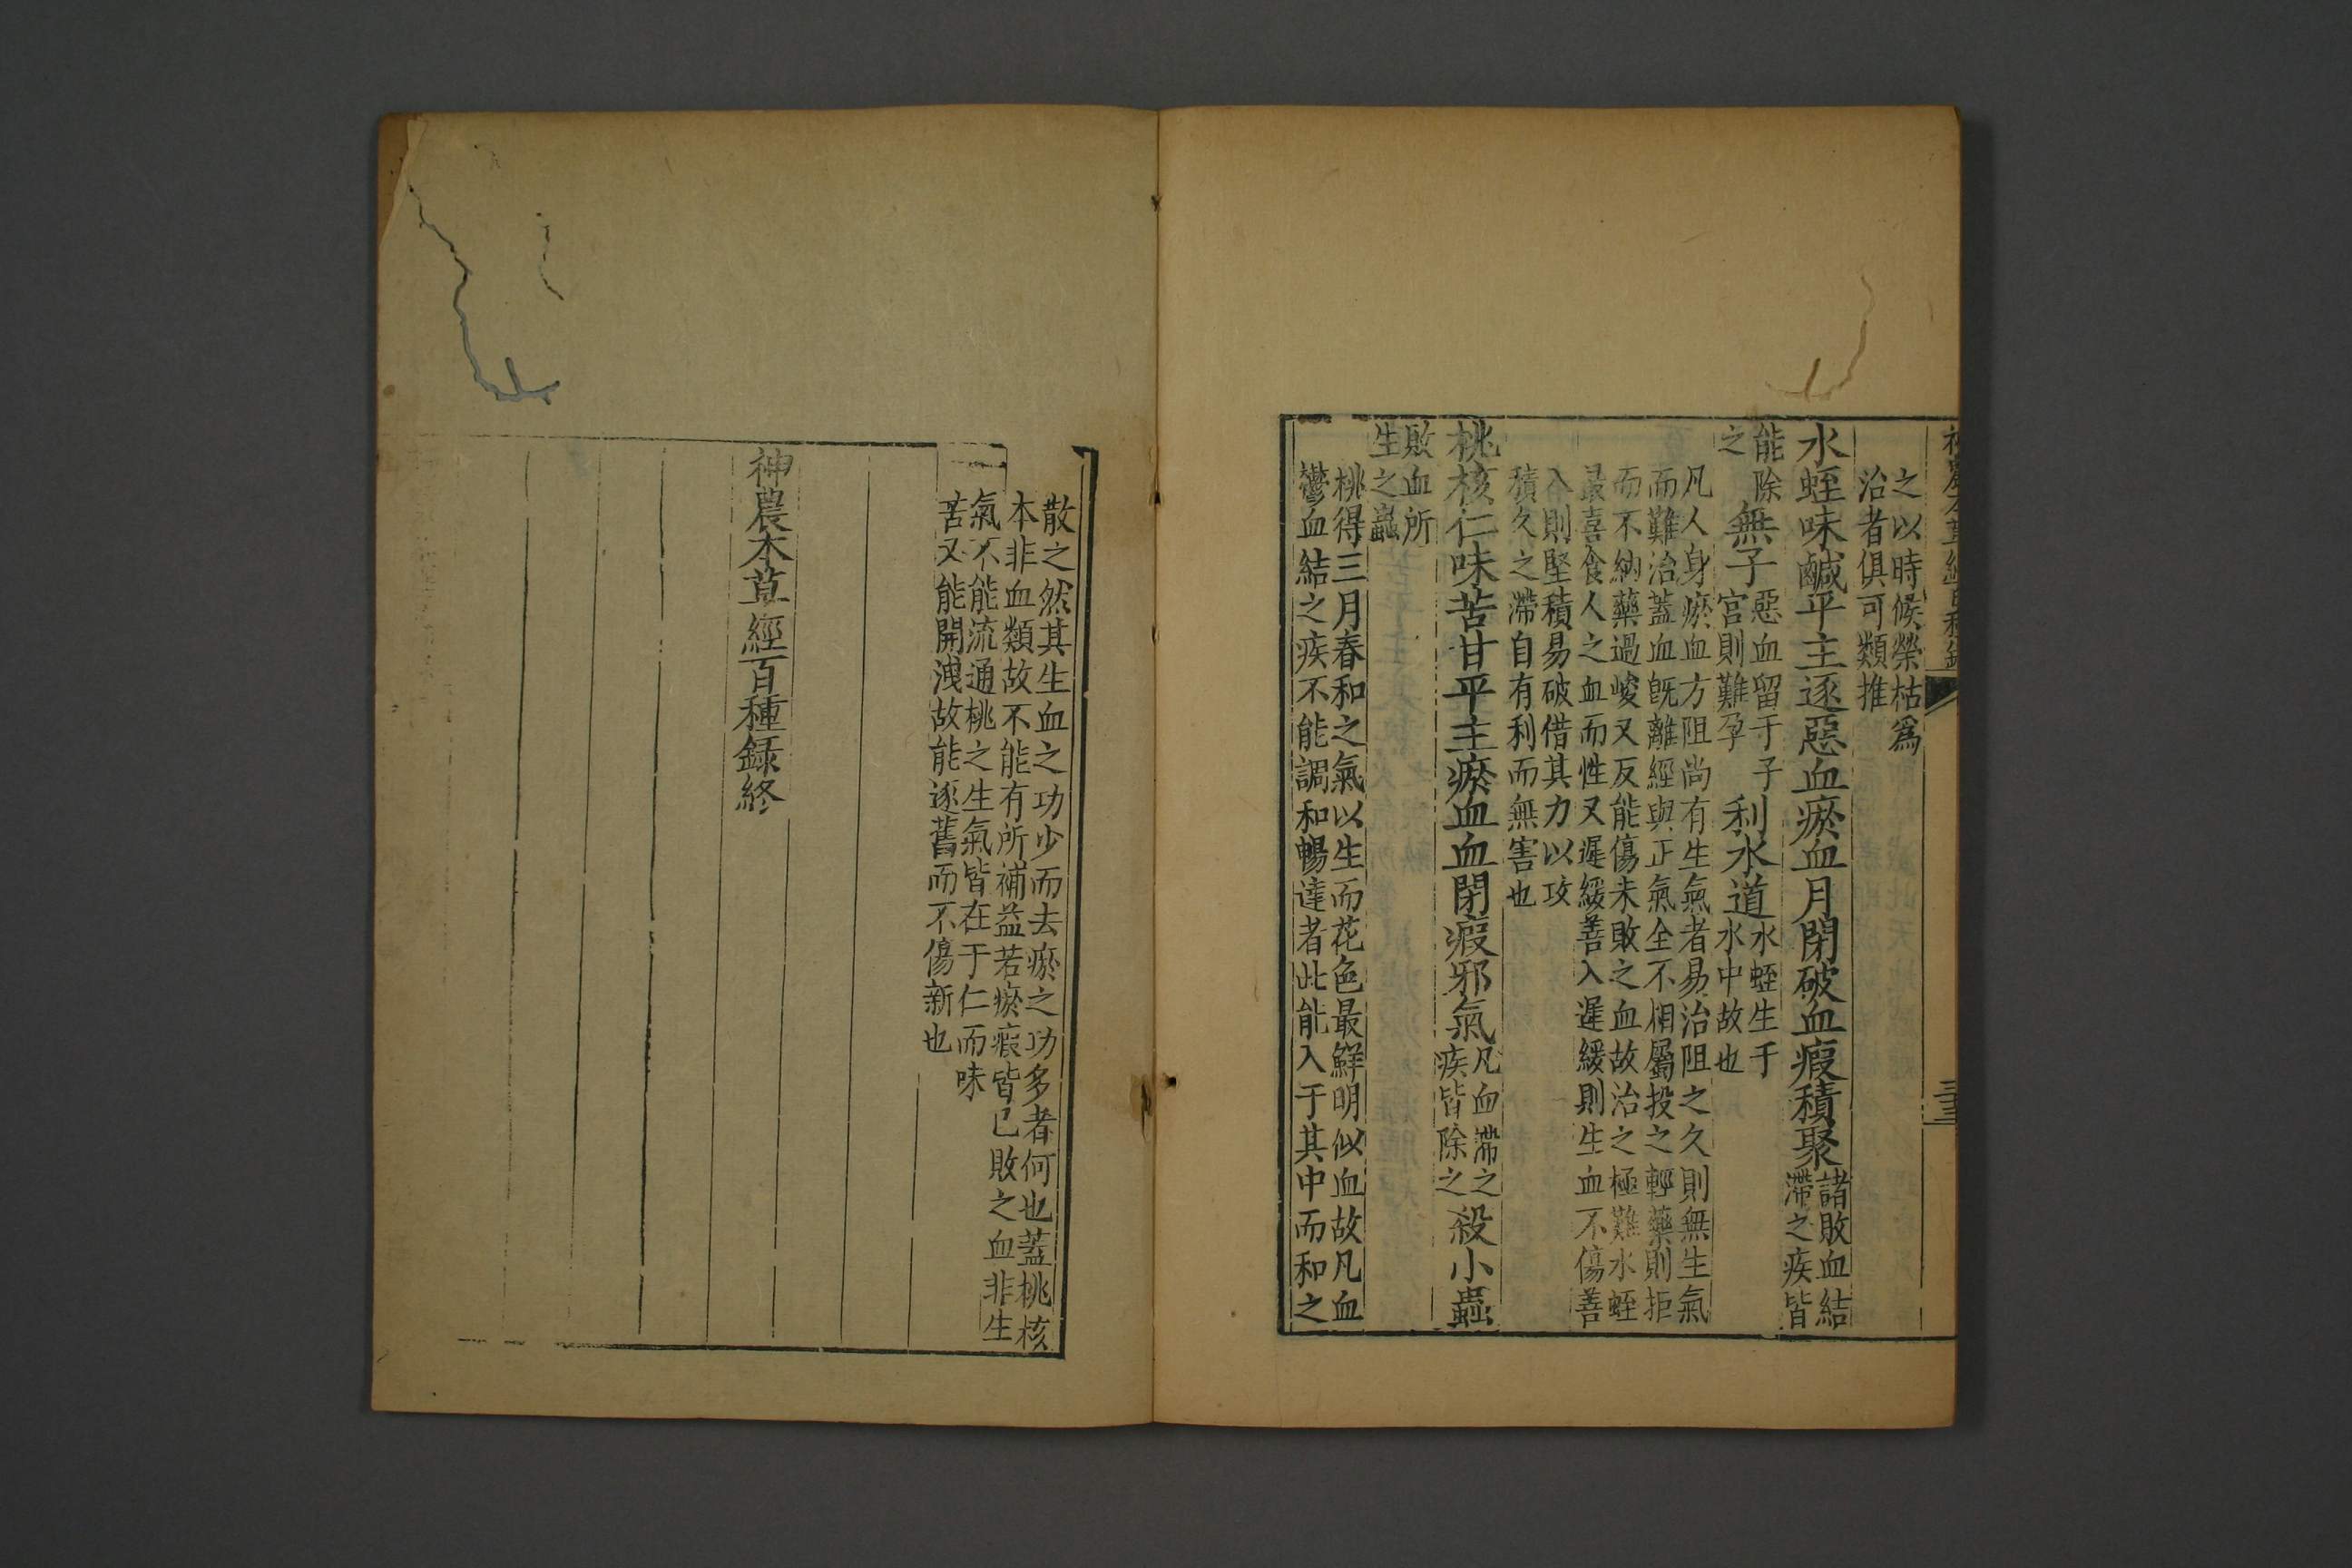 之以時候榮枯爲
治者俱可類推
水蛭味鹹平主逐惡血瘀血月閉破血瘕積聚諸敗血結滯之疾皆
能除之無子惡血留于子宮則難孕利水道水蛭生于水中故也
凡人身瘀血方阻尚有生氣者易治阻之久則無生氣
而難治蓋血旣離經與正氣全不相屬投之輕藥則拒
而不納藥過峻又反能傷未敗之血故治之極難水蛭
最喜食人之血而性又遲緩善入遲緩則生血不傷善
入則堅積易破借其力以攻
積久之滯自有利而無害也
桃核仁味苦甘平主瘀血血閉瘕邪氣凡血滯之疾皆除之殺小蟲
敗血所生之蟲
桃得三月春和之氣以生而花色最鮮明似血故凡血
鬱血結之疾不能調和暢達者此能入于其中而和之
散之然其生血之功少而去瘀之功多者何也蓋桃核
本非血類故不能有所補益若瘀瘕皆已敗之血非生
氣不能流通桃之生氣皆在于仁而味
苦又能開洩故能逐舊而不傷新也
神農本草經百種錄終